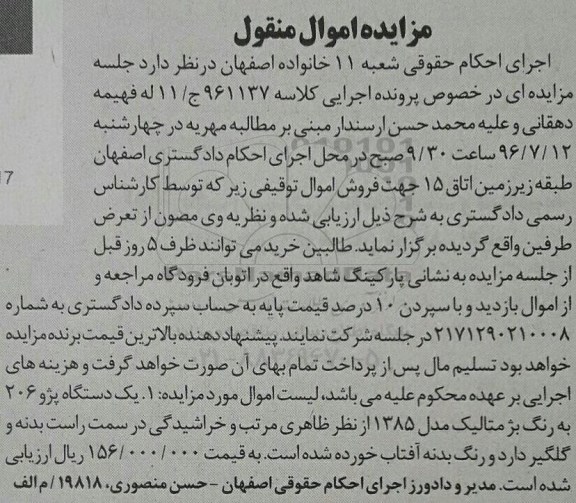 مزایده اموال منقول
اجرای احکام حقوقی شعبه ۱۱ خانواده اصفهان درنظر دارد جلسه
مزایده ای در خصوص پرونده اجرایی کلاسه ۹۶۱۱۳۷ ج/۱۱ له فهیمه
دهقانی و علیه محمد حسن ارسندار مبنی بر مطالبه مهریه در چهارشنبه
۹۶/۷/۱۲ ساعت ۹/۳۰ صبح در محل اجرای احکام دادگستری اصفهان
طبقه زیرزمین اتاق ۱۵ جهت فروش اموال توقیفی زیر که توسط کارشناس
رسمی دادگستری به شرح ذیل ارزیابی شده و نظریه وی مصون از تعرض
طرفین واقع گردیده برگزار نماید. طالبین خرید می توانند ظرف ۵ روز قبل
از جلسه مزایده به نشانی پارکینگ شاهد واقع در اتوبان فرودگاه مراجعه و
از اموال بازدید و با سپردن ۱۰ درصد قیمت پایه به حساب سپرده دادگستری به شماره
۲۱۷۱۲۹۰۲۱۰۰۰۸ در جلسه شرکت نمایند. پیشنهاد دهنده بالاترین قیمت برنده مزایده
خواهد بود تسلیم مال پس از پرداخت تمام بهای آن صورت خواهد گرفت و هزینه های
اجرایی بر عهده محکوم علیه می باشد، لیست اموال مورد مزایده: ۱. یک دستگاه پژو ۲۰۶
به رنگ بژ متالیک مدل ۱۳۸۵ از نظر ظاهری مرتب و خراشیدگی در سمت راست بدنه و
گلگیر دارد و رنگ بدنه آفتاب خورده شده است. به قیمت ۱۵۶/۰۰۰/۰۰۰ ریال ارزیابی
شده است. مدیر و دادورز اجرای احکام حقوقی اصفهان - حسن منصوری، ۱۹۸۱۸/م الف
17